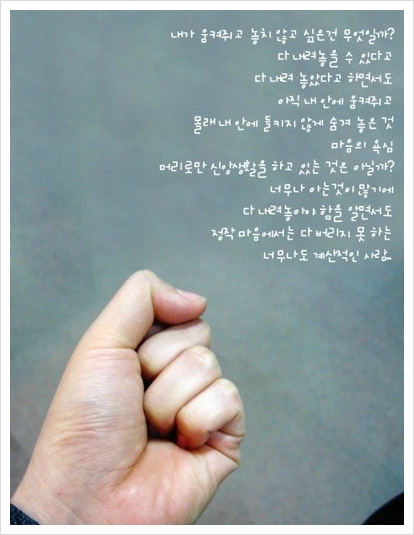 내가 움켜쥐고 놓치 않고 싶은건 무엇일까?
다 내려놓을 수 있다고
다 내려 놓았다고 하면서도
아직 내 안에 움켜쥐고
몰래 내 안에 들키지 않게 숨겨 놓은 것
마음의 욕심
머리로만 신앙생활을 하고 있는 것은 아닐까?
너무나 아는것이 많기에
다 내려놓아야 함을 알면서도
정작 마음에서는 다 버리지 못 하는
너무나도 계산적인 사람.